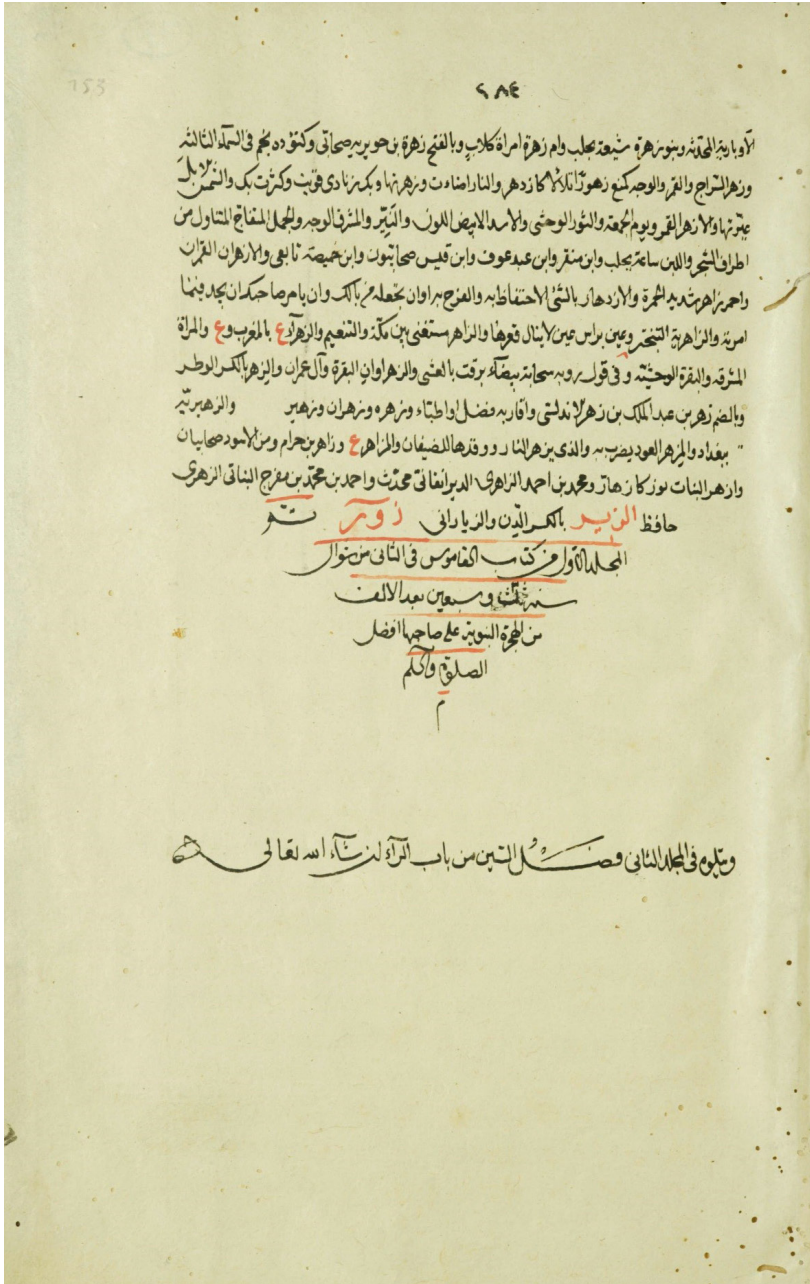 ٢٨٤
الأوبارية المحدثة وبنو زهرة شيعة بحلب وام زهرة امراة كلاب وبالفتح زهرة بن حويرية صحابى وكتؤدة نجم فى السماء الثالثة
وزهر السراج والقمر والوجه كمنع زهورا تلألأ كازدهر والنار اضاءت وزهرتها وبك زنادى قويت وكثرت بك والشمس الابل
غيرتها والازهر القمر ويوم الجمعة والثور الوحشى والاسد الابيض اللون والنير والمشرق الوجه والجمل المفاج المتناول من
اطراف الشجر واللبن ساعة يحلب وابن منقر وابن عبد عوف وابن قيس صحابيون وابن خميصة تابعى والازهران القمران
واحمر زاهر شديد الحمرة والازدهار بالشئ الاحتفاظ به والفرح به او ان تجعله من بالك وان يامر صاحبك ان يجد فيما
امرته والزاهرية التبختر وعين براس عين لا ينال قعرها والزاهر مستقى بين مكة والتنعيم والزهراء ع بالمغرب وع والمراة
المشرقة والبقرة الوحشية وفى قول روبة سحابة بيضاء برقت بالعشى والزهراوان البقرة وآل عمران والزهر بالكسر الوطر
وبالضم زهر بن عبد الملك بن زهر الاندلسى واقاربه فضلاء واطباء وزهرة وزهران وزهير والزهيرية
ببغداد والمزهر العود يضرب به والذى يزهر النار ويوقدها للضيفان والمزاهر ع وزاهر بن حرام ومن الاسود صحابيان
وازهر النبات نور كازهار ومحمد بن احمد الزاهرى الديرانقانى محدث واحمد بن محمد بن مفرج النباتى الزهرى
حافظ الزير بالكسر الدن والزياراتى زور
المجلد الاول من كتاب القاموس فى الثانى من شوال
سنة ثلث وسبعين بعد الالف
من الهجرة النبوية على صاحبها افضل
الصلوة واكلم
م
ويتلوه فى المجلد الثانى فصل السين من باب الراء ان شاء الله تعالى